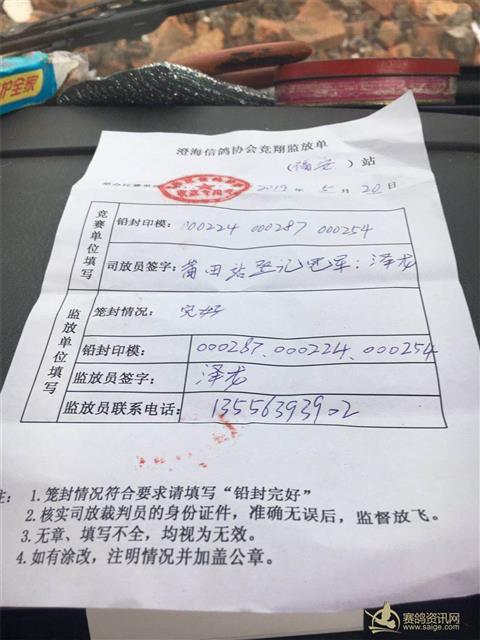 护全家
澄海信鸽协会竞翔监放单
（福安）站
2019年5月20日
竞赛单位填写
铅封印模：000224 000287 000254
司放员签字：莆田站登记冠军：泽龙
监放单位填写
笼封情况：完好
铅封印模：000287、000224、000254
监放员签字：泽龙
监放员联系电话：13556393902
注：1.笼封情况符合要求请填写“铅封完好”
2.核实司放裁判员的身份证件，准确无误后，监督放飞。
3.无章、填写不全，均视为无效。
4.如有涂改，注明情况并加盖公章。
赛鸽资讯网
www.saige.com